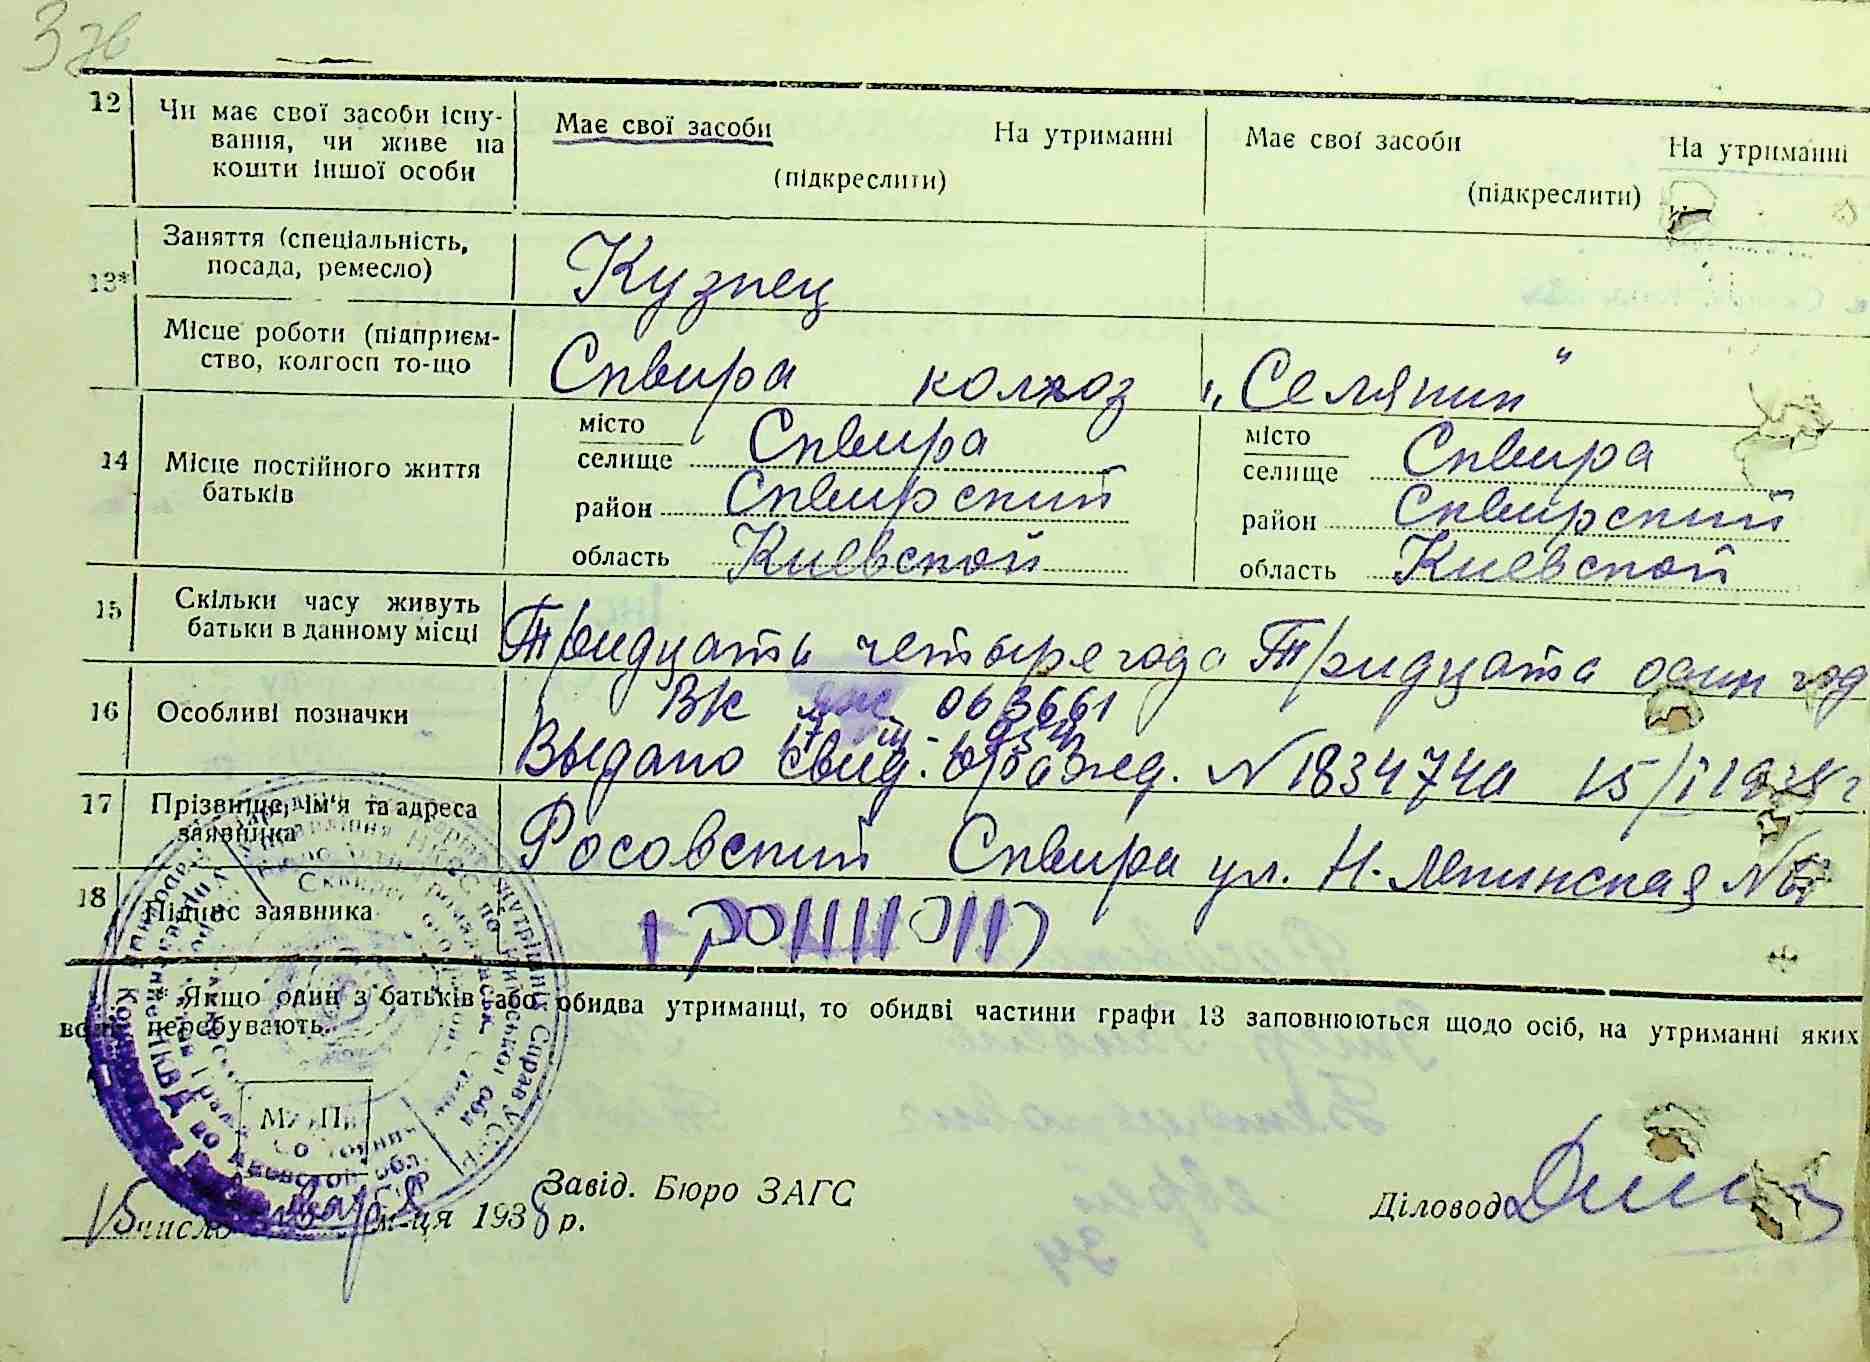 12
Чи має свої засоби існу-
вання, чи живе на
кошти іншої особи
Має свої засоби На утриманні
(підкреслити)
Має свої засоби На утриманні
(підкреслити)
13*
Заняття (спеціальність,
посада, ремесло)
Кузнец
Місце роботи (підприєм-
ство, колгосп то-що
Сквира колхоз „Селянин"
14
Місце постійного життя
батьків
місто
селище Сквира
район Сквирский
область Киевской
місто
селище Сквира
район Сквирский
область Киевской
15
Скільки часу живуть
батьки в данному місці
Тридцать четыре года Тридцать один год
16
Особливі позначки
ВК 063661
Выдано свид. № 183474а 15/I 1938 г
17
Прізвище, ім'я та адреса
заявника
Росовский Сквира ул. Н-Ленинская №
18
Підпис заявника
Якщо один з батьків або обидва утриманці, то обидві частини графи 13 заповнюються щодо осіб, на утриманні яких
вони перебувають.
М. П.
15 числа м-ця 1938 р.
Завід. Бюро ЗАГС
Діловод